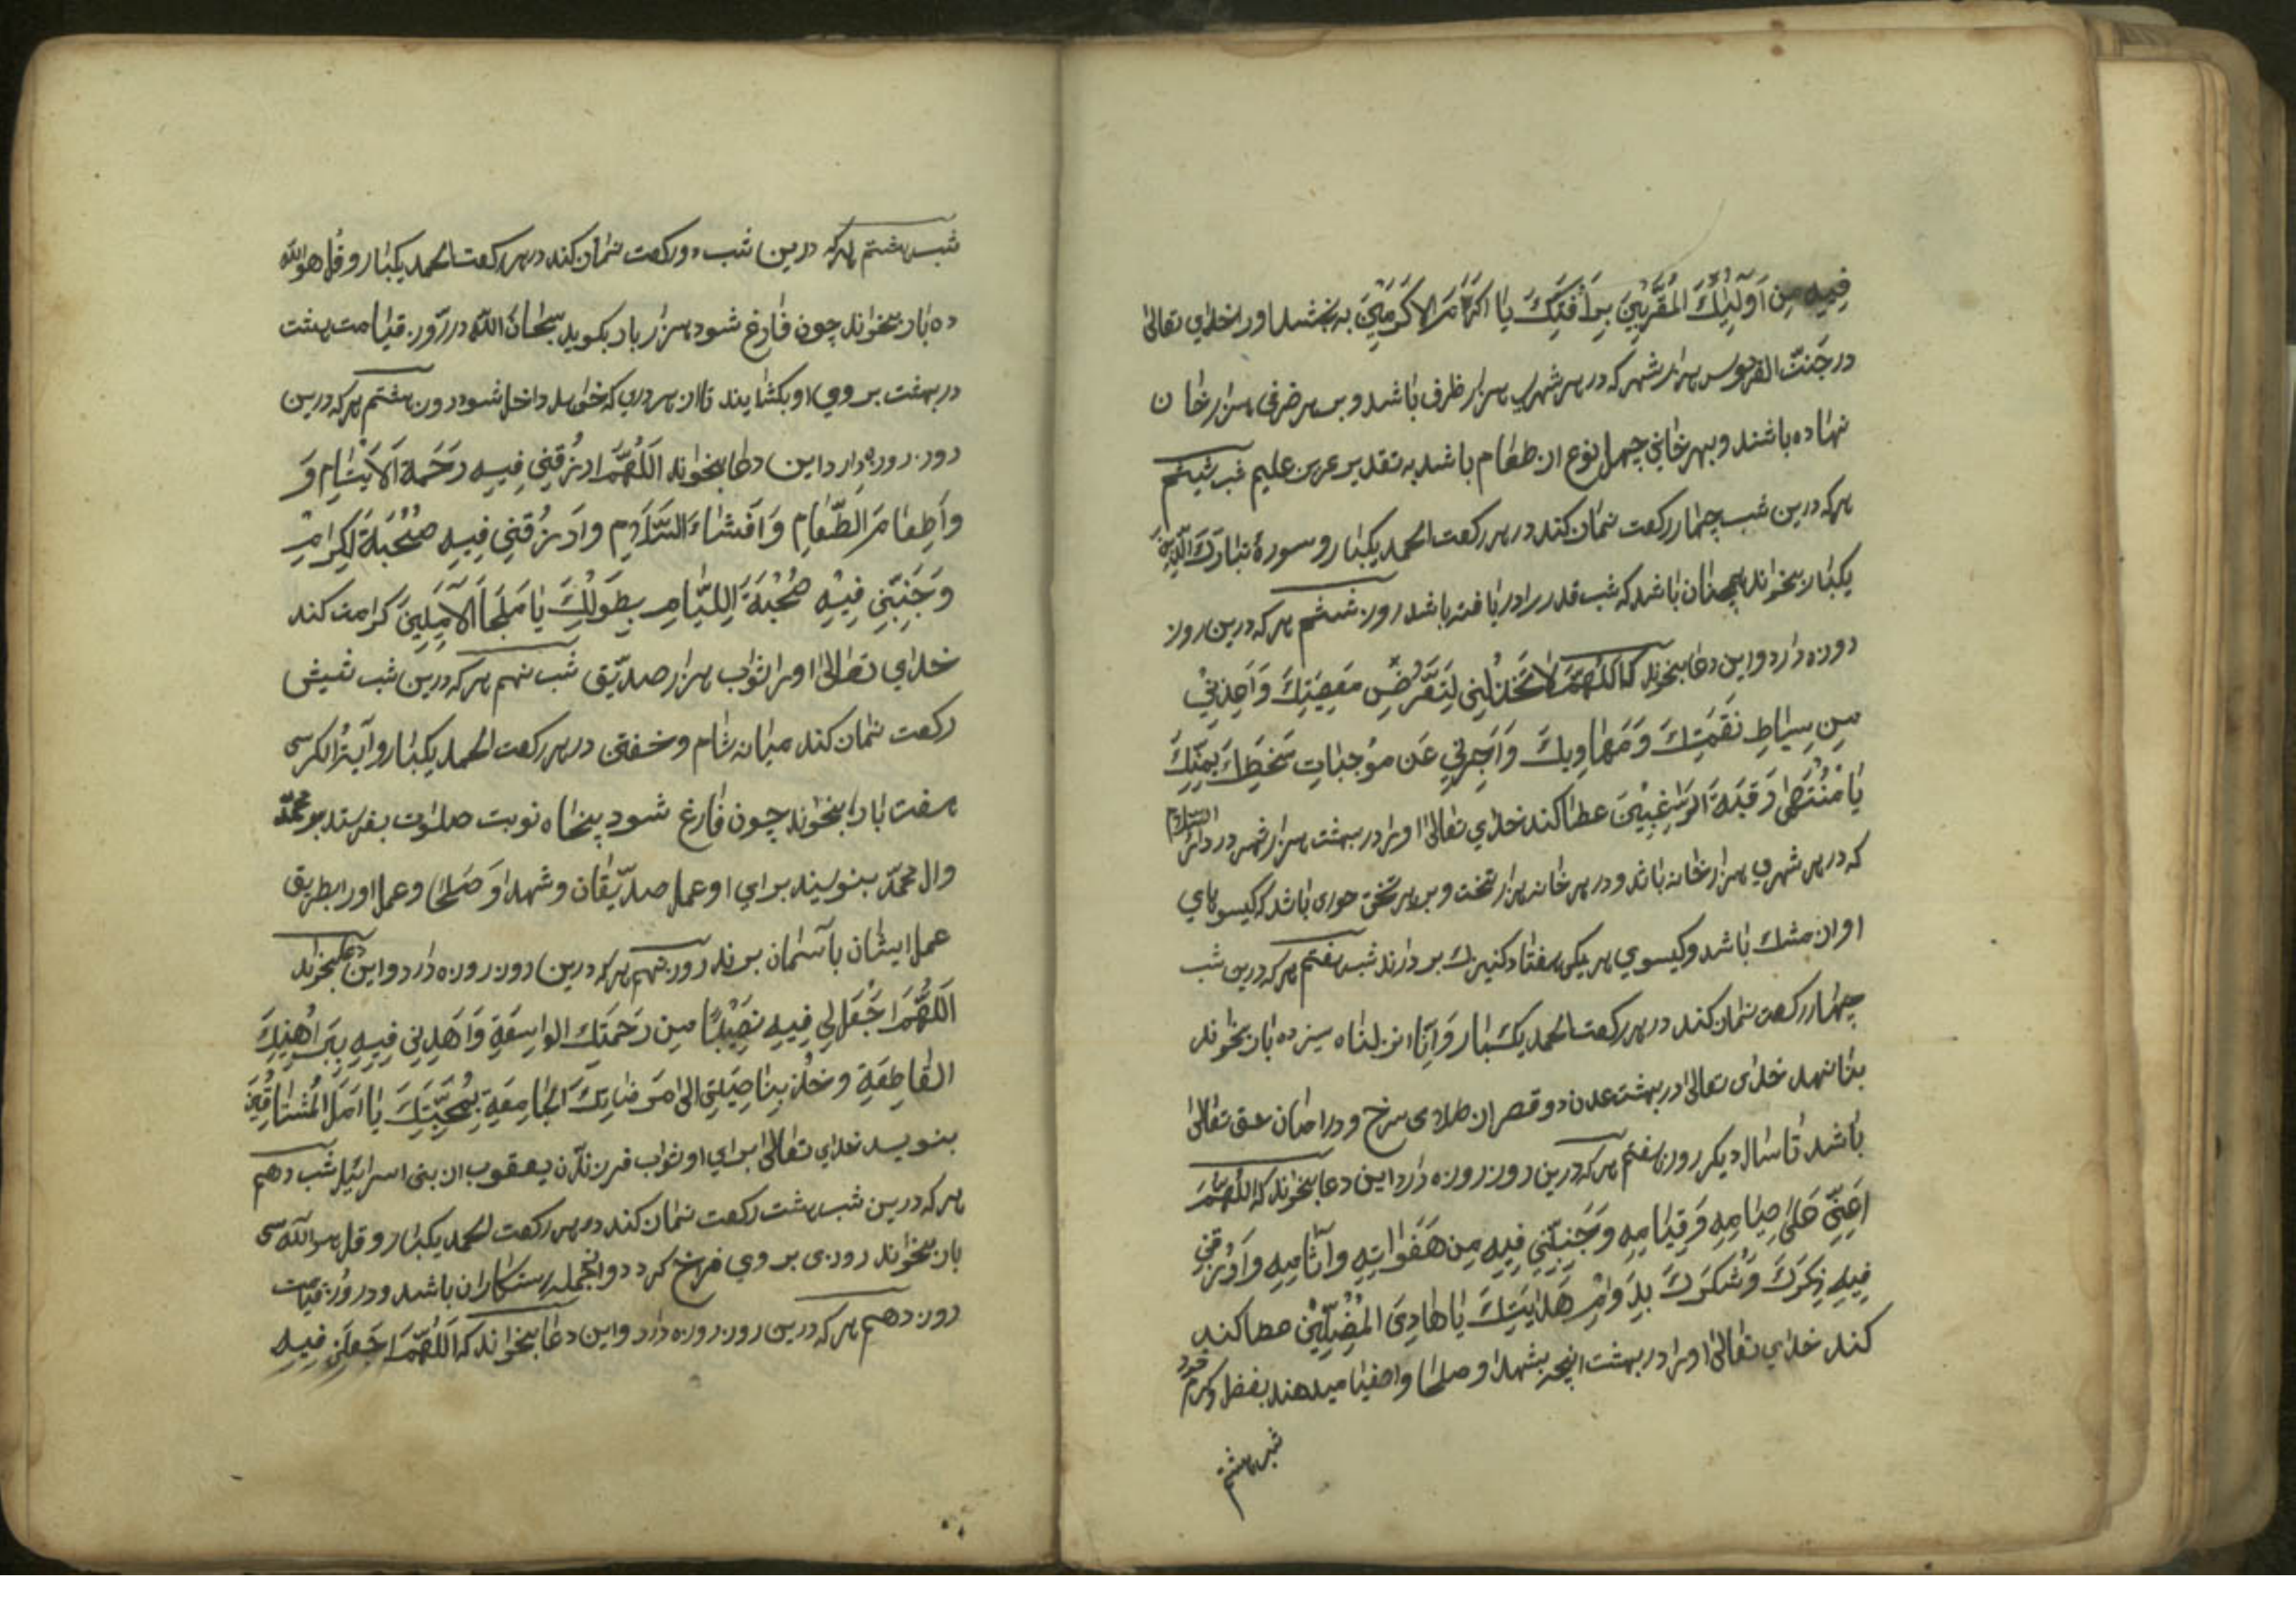 فِيهِ مِن اَوْلِيٰائِكَ الْمُقَرَّبِيْنَ بِرَأفَتِكَ يٰا اَكْرَمَ الاَكرَمِيْنَ به بخشد اورا خداي تعالىٰ
در جَنّت الفردوس هزار شهر كه در هر شهري هزار ظرف باشد و بر هر ضرفى هزار خان
نهاده باشند وبهر خاني چهل نوع از طعام باشد به تقدير عزيز عليم شب شيشم
هركه درين شب چهار ركعت نماز كند در هر ركعت الحمد يكبار و سورهٔ تبارك الّذى
يكبار بخواند همچنان باشد كه شب قدر را دريافته باشد روز ششم هركه درين روز
روزه دارد و اين دعا بخواند كه اللهُمَّ لاٰ تَخْذُلْنِي لِتَعَرُّضِ مَعصِيَتِكَ وَاَعِذنِيْ
مِن سِيٰاطِ نَقِمَتِكَ وَمَهاوِيكَ وَاَجِرْنِي عَن مُوْجِبٰاتِ سَخَطِكَ بِمَنِّكَ
يٰا مُنْتَهىٰ رَقبَةَ الرّٰاغِبِيْنَ عطا كند خداي تعالىٰ اورا در بهشت هزار شهر در دار السلام
كه در هر شهري هزار خانه باشد و در هر خانه هزار تخت و بر هر تختى حورى باشد كه كيسوهاي
او از مشك باشد و كيسوي هر يكى هفتاد كنيزك بر دارند شب هفتم هر كه درين شب
چهار ركعت نماز كند در هر ركعت الحمد يكبار و اِنّا انزلناه سيزده بار بخواند
بنا نهد خداى تعالىٰ در بهشت عدن دو قصر از طلاى سرخ و در امان حق تعالىٰ
باشد تا سال ديكر روز هفتم هر كه درين روز روزه دارد اين دعا بخواند كه اللّهُمَّ
اَعِنِّي عَلىٰ صِيٰامِهِ وَ قِيٰامِهِ وَجَنِّبْنِي فِيهِ مِن هَفَوٰاتِهِ وآثٰامِهِ وَارْزُقنِي
فِيهِ ذِكرَكَ وَشُكرَكَ بِدَوٰامِ هَدٰايَتِكَ يٰا هٰادِىَ المُضِلِّيْنَ عطا كند
كند خداي تعالىٰ اورا در بهشت آنچه بشهدا و صلحا و اصفيا ميدهند بفضل و كرم خود
شب هشتم
شب هشتم هركه درين شب دو ركعت نماز كند در هر ركعت الحمد يكبار و قُل هو الله
ده بار بخواند چون فارغ شود هزار بار بكويد سبحان الله در روز قيامت هشت
در بهشت بر روي او بكشايند تا از هر دري كه خواهد داخل شود روز هشتم هركه درين
روز روزه دارد اين دعا بخواند اَللّهُمَّ ارزُقنِي فِيهِ رَحَمةَ الاَيْتٰامِ وَ
وَاَطِعٰامَ الطَّعٰامِ وَ اَفشٰاءَ السَّلٰامِ وارزُقنِي فِيهِ صُحْبَةَ الكِرٰامِ
وَجَنِّبْنِي فِيْهِ صُحْبَةَ اللِئٰامِ بِطَولِكَ يٰا مَلجَأَ الآمِلِينَ كرامت كند
خداي تعالىٰ اورا ثواب هزار صديّق شب نهم هر كه درين شب شيش
ركعت نماز كند ميانه شام و خفتن در هر ركعت الحمد يكبار و آيتُ الكرسى
هفت بار بخواند چون فارغ شود پنجاه نوبت صلوات بفرستد بر محمّد
وال محمّد بنويسند براي او عمل صدّيقان و شهدا وَ صَلحا و عمل اورا بطريق
عمل ايشان بآسمان برند روز نهم هر كه درين روز روزه دارد و اين دعا بخواند
اَللّهُمَّ اجْعَل لِي فِيهِ نَصِيْبًا مِن رَحمَتِكَ الوٰاسِعَةِ وَاهَدِنِي فِيهِ بِبَرٰاهِينِكَ
القٰاطِعَةِ وَ خُذ بِنٰاصِيَتِي الىٰ مَرضٰاتِكَ الجٰامِعَةِ بِمُحَبَّتِكَ يٰا اَمَلَ المُشتٰاقِينَ
بنويسد خداي تعالىٰ براي او ثواب فرزندان يعقوب از بنى اسرائيل شب دهم
هر كه درين شب هشت ركعت نماز كند در هر ركعت الحمد يكبار و قل هو الله سى
بار بخواند روزى بر وي فراخ كردد و از جمله رستكاران باشد و در روز قيامت
روز دهم هر كه درين روز روزه دارد و اين دعا بخواند كه اَللّهُمَّ اجعَلنِي فِيهِ